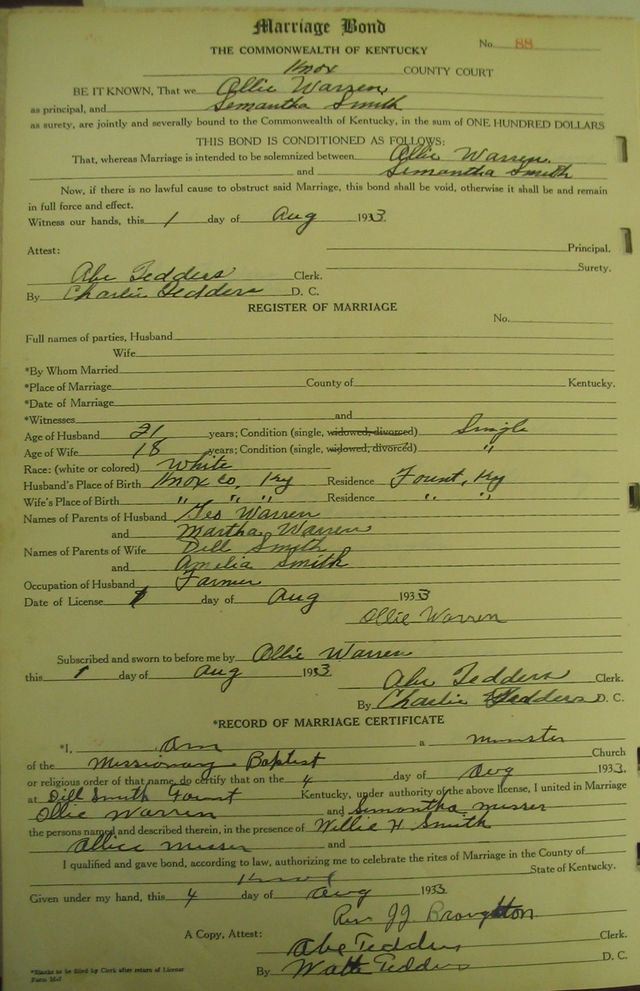 Marriage Bond
THE COMMONWEALTH OF KENTUCKY No. 88
Knox COUNTY COURT
BE IT KNOWN, That we Ollie Warren
as principal, and Semantha Smith
as surety, are jointly and severally bound to the Commonwealth of Kentucky, in the sum of ONE HUNDRED DOLLARS
THIS BOND IS CONDITIONED AS FOLLOWS:
That, whereas Marriage is intended to be solemnized between Ollie Warren
and Semantha Smith
Now, if there is no lawful cause to obstruct said Marriage, this bond shall be void, otherwise it shall be and remain
in full force and effect.
Witness our hands, this 1 day of Aug 1933.
Attest: Principal.
Abe Tedders Clerk. Surety.
By Charlie Tedders D. C.
REGISTER OF MARRIAGE
No.
Full names of parties, Husband
Wife
*By Whom Married
*Place of Marriage County of Kentucky.
*Date of Marriage
*Witnesses and
Age of Husband 21 years; Condition (single, widowed, divorced) Single
Age of Wife 18 years; Condition (single, widowed, divorced) "
Race: (white or colored) White
Husband's Place of Birth Knox Co, Ky Residence Fount, Ky
Wife's Place of Birth " " " Residence " "
Names of Parents of Husband Geo Warren
and Martha Warren
Names of Parents of Wife Dill Smith
and Amelia Smith
Occupation of Husband Farmer
Date of License 1 day of Aug 1933
Ollie Warren
Subscribed and sworn to before me by Ollie Warren
this 1 day of Aug 1933
Abe Tedders Clerk.
By Charlie Tedders D. C.
*RECORD OF MARRIAGE CERTIFICATE
*I, Am a minster
of the Missionary Baptist Church
or religious order of that name, do certify that on the 4 day of Aug 1933.
at Dill Smith Fount Kentucky, under authority of the above license, I united in Marriage
Ollie Warren and Simantha Messer
the persons named and described therein, in the presence of Willie H Smith
Allice Messer and
I qualified and gave bond, according to law, authorizing me to celebrate the rites of Marriage in the County of
State of Kentucky.
Given under my hand, this 4 day of Aug 1933
Rev JJ Broughton
A Copy, Attest: Abe Tedders Clerk.
By Walt Tedders D. C.
*Blanks to be filled by Clerk after return of License